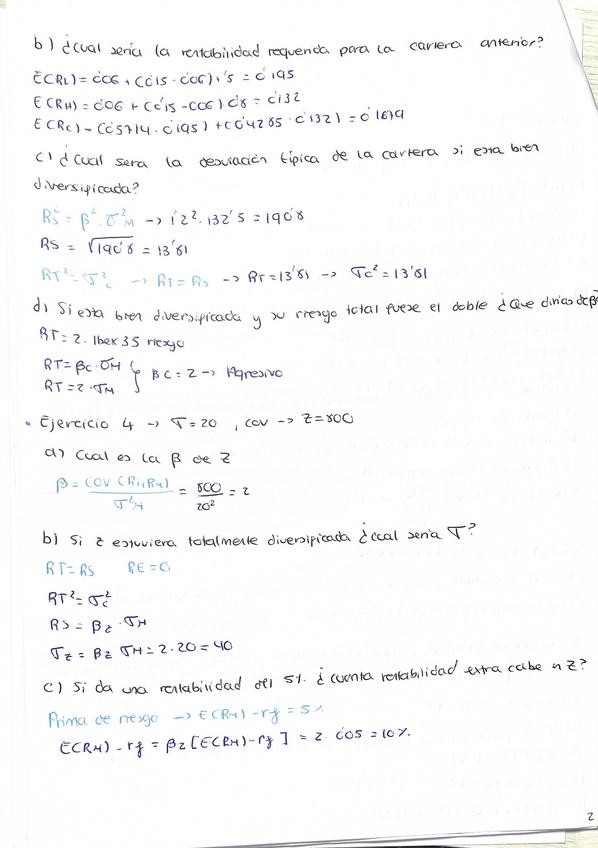 b) ¿Cual sería la rentabilidad requerida para la cartera anterior?
E(RL) = 0'06 + (0'15 - 0'06) 1'5 = 0'195
E(RH) = 0'06 + (0'15 - 0'06) 0'8 = 0'132
E(RC) = (0'5714 · 0'195) + (0'4285 · 0'132) = 0'1679
c) ¿Cual sera la desviación típica de la cartera si esta bien
diversificada?
RS² = β² · σ²M → 1'2² · 132'5 = 190'8
RS = √190'8 = 13'81
RT² = σ²c → RT = RS → RT = 13'81 → σc² = 13'81
d) Si esta bien diversificada y su riesgo total fuese el doble ¿Que dirias de β?
RT = 2 · Ibex 35 riesgo
RT = βc · σM
RT = 2 · σM } βc = 2 → Agresivo
• Ejercicio 4 → σ = 20 , cov → Z = 800
a) Cual es la β de Z
β = COV (Ri, RM) / σ²M = 800 / 20² = 2
b) Si Z estuviera totalmente diversificada ¿cual seria σ?
RT = RS RE = 0
RT² = σ²c
RS = βz · σM
σz = βz σM = 2 · 20 = 40
c) Si da una rentabilidad del 5% ¿cuanta rentabilidad extra cabe n Z?
Prima de riesgo → E(RM) - rf = 5%
E(RM) - rf = βz [E(RM) - rf] = 2 · 0'05 = 10%
2